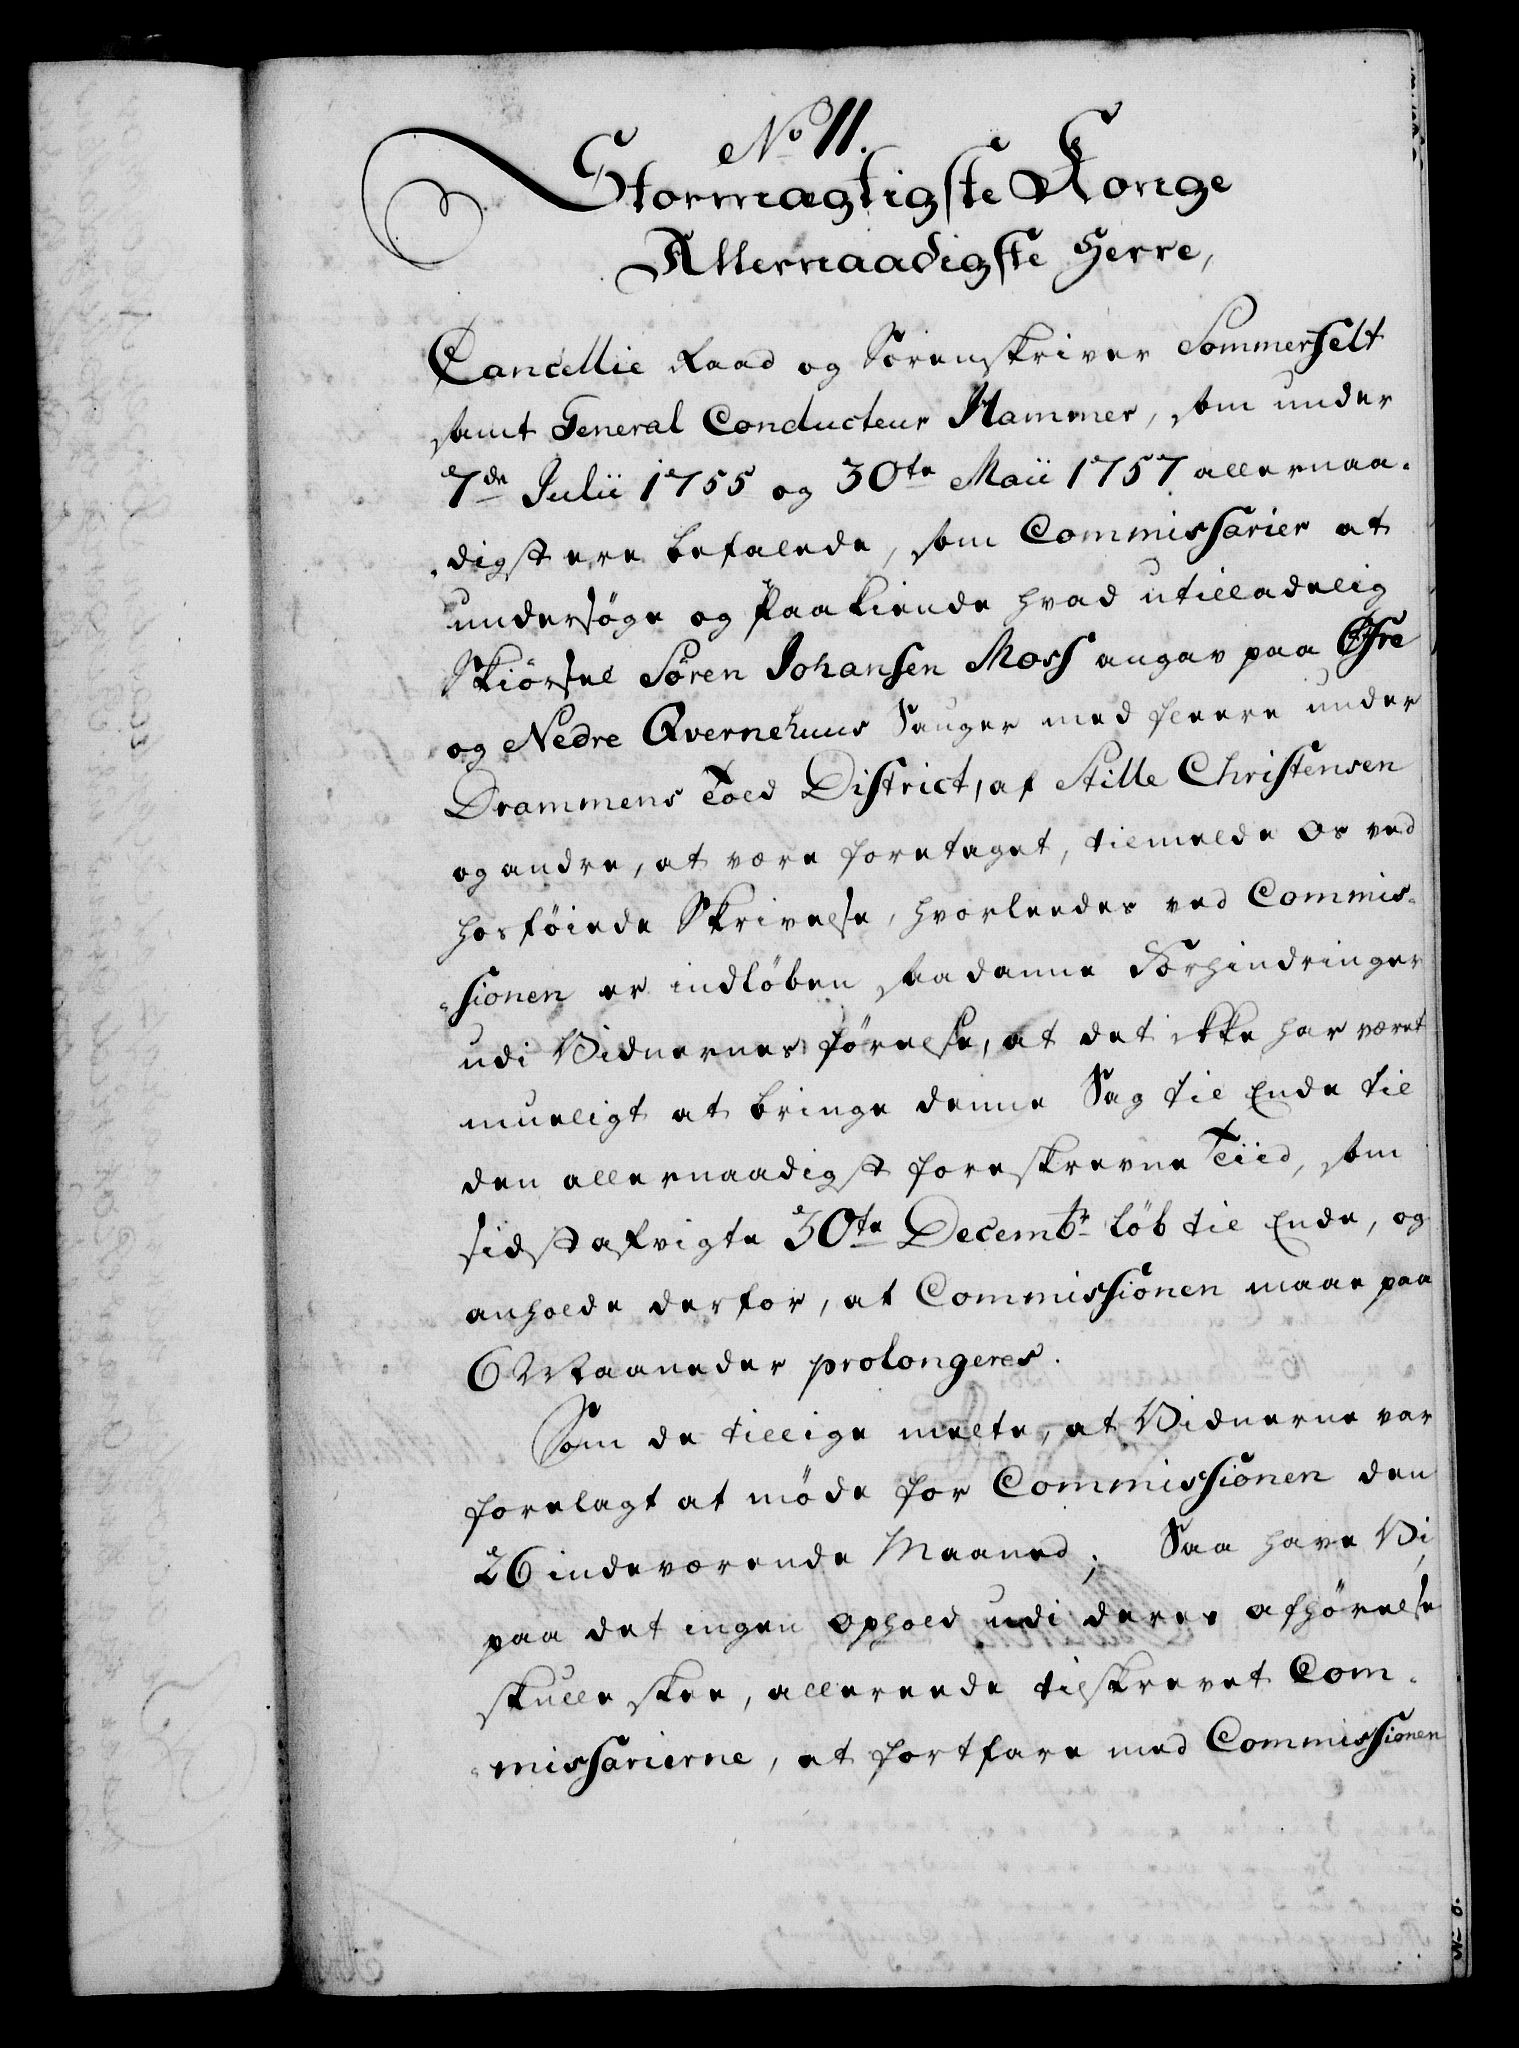 No 11.
Stormægtigste Konge
Allernaadigste Herre,
Cancellie Raad og Sorenskriver Sommerfelt
samt General Conducteur Hammer, som under
7de Julii 1755 og 30te Maii 1757 allernaa-
-digst ere befalede, som Commissarier at
undersöge og Paakiende hvad utilladelig
Skiörsel Sören Johansen Moss angav paa Öfre
og Nedre Qvernehuus Sauger med fleere under
Drammens Told District, af Stille Christensen
og andre, at være foretaget, tilmelde Os ved
hosföiede Skrivelse, hvorleedes ved Commis-
-sionen er indlöben saadanne Forhindringer
udi Vidnernes förelse, at det ikke har været
mueligt at bringe denne Sag til Ende til
den allernaadigst foreskrevne Tiid, som
sidstafvigte 30te Decembr löb til Ende, og
anholde derfor, at Commissionen maae paa
6 Maaneder prolongeres.
Som de tillige melte, at Vidnerne var
forelagt at möde for Commissionen den
26 indeværende Maaned; Saa have Vi
paa det ingen Ophold udi deres afhörelse
skulle skee, allereede tilskrevet Com-
-missarierne, at fortfare med Commissionen